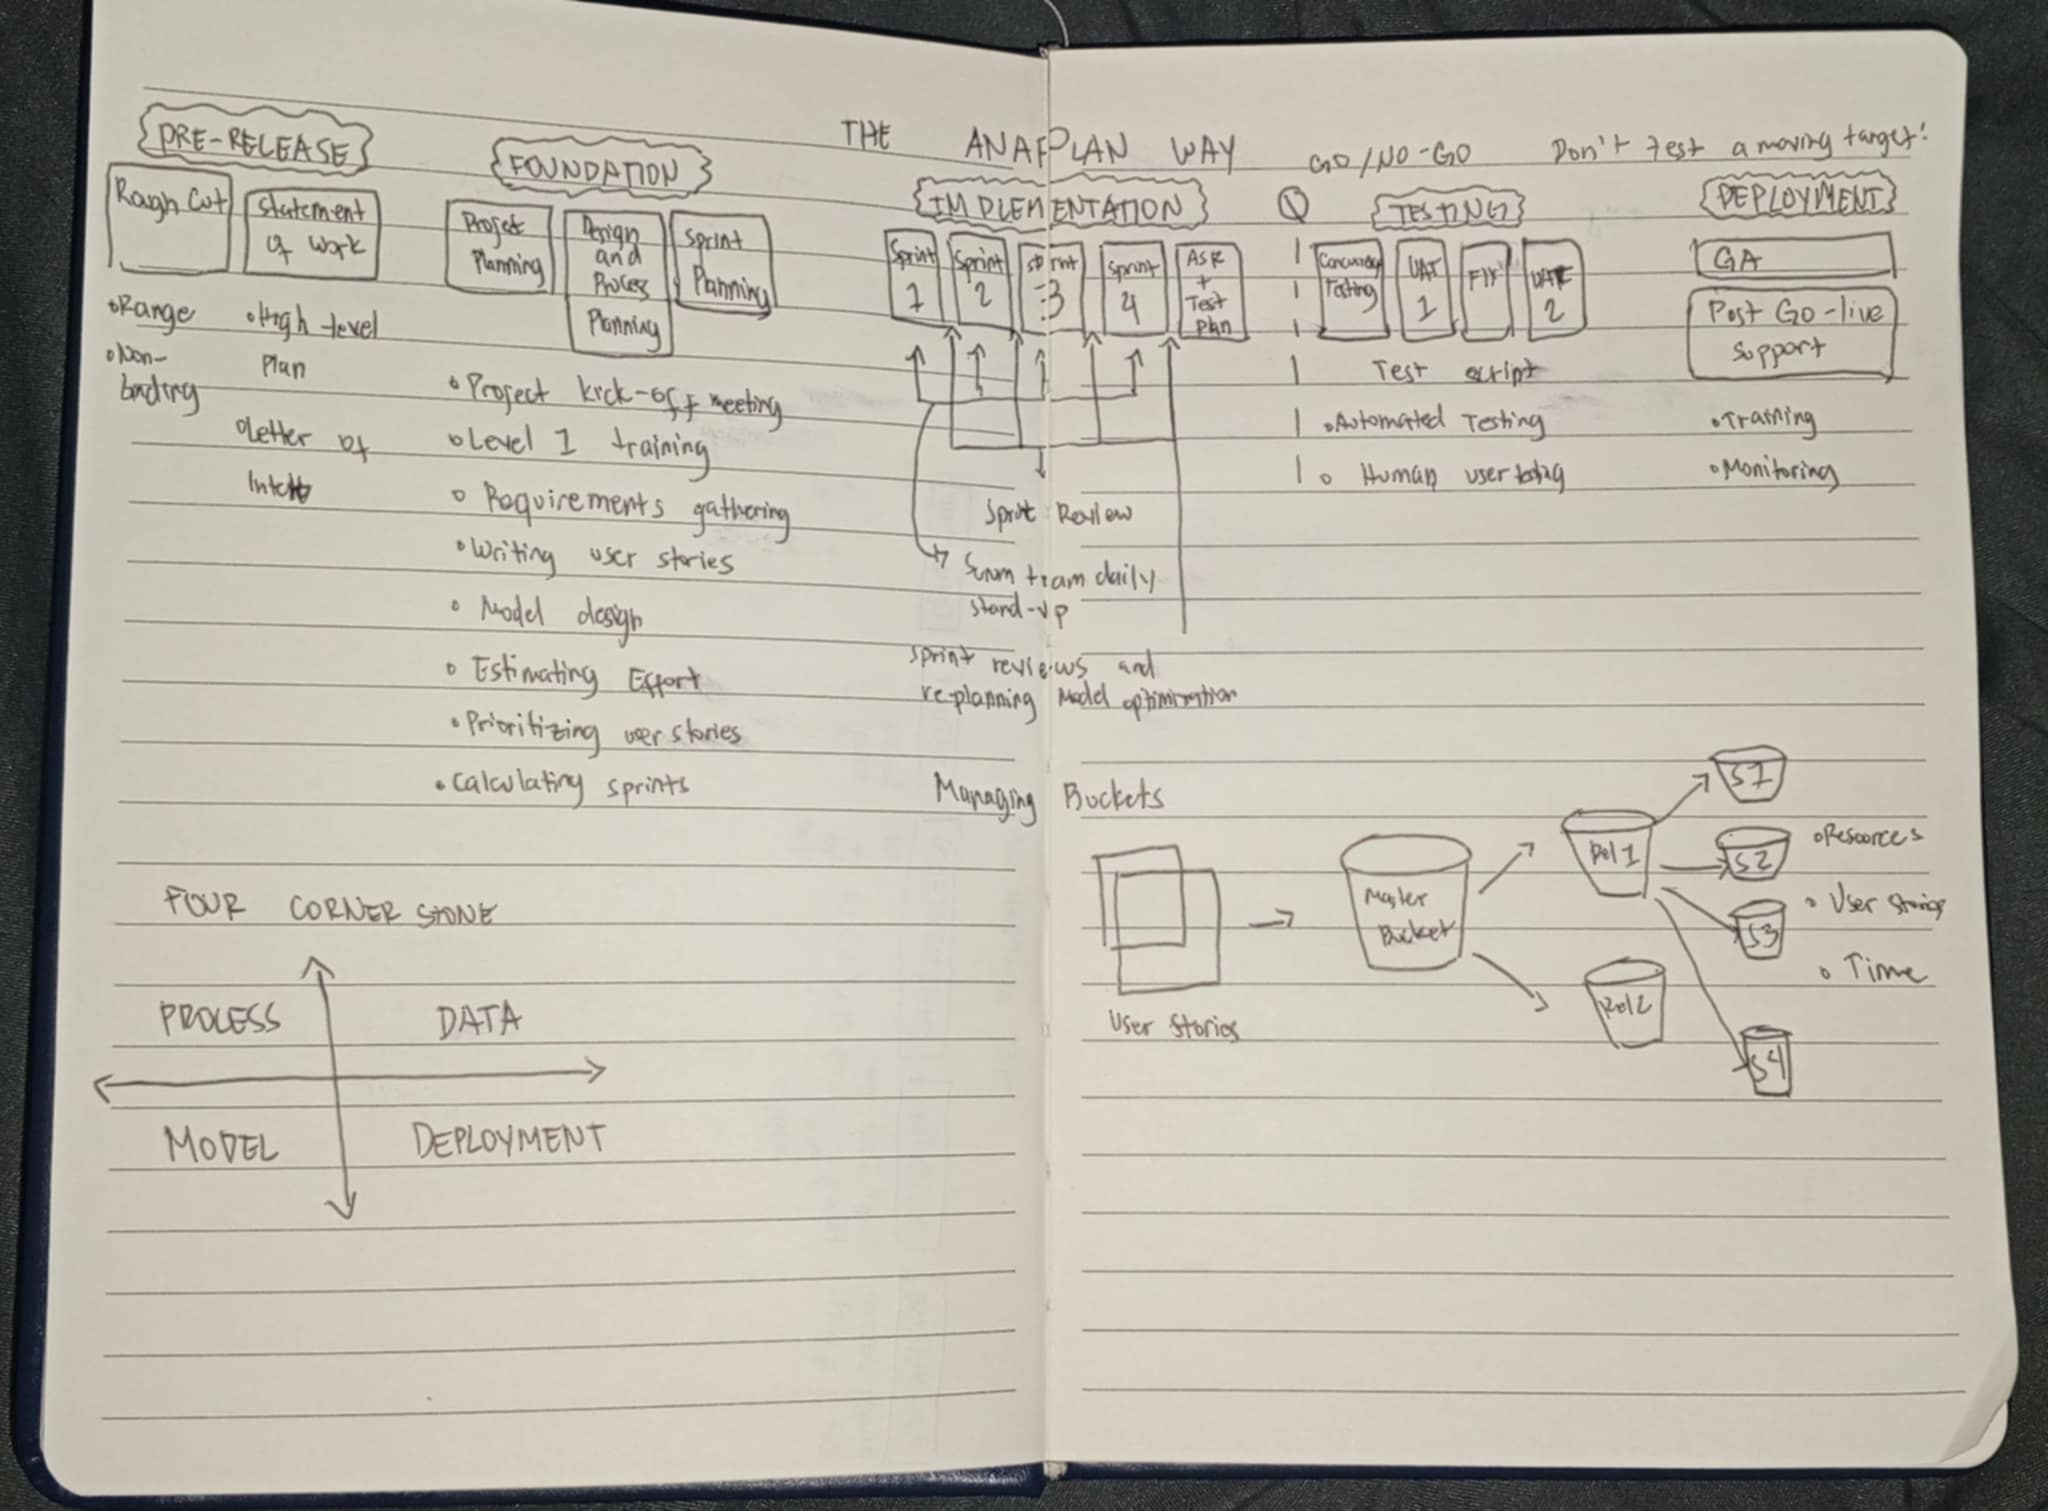 THE ANAPLAN WAY
GO/NO-GO
Don't test a moving target!
PRE-RELEASE
Rough Cut
Statement
of work
oRange
oNon-
binding
oHigh level
Plan
oLetter of
FOUNDATION
Project
Planning
Design
and
Process
Planning
Sprint
Planning
o Project kick-off meeting
o Level 1 training
o Requirements gathering
o Writing user stories
o Model design
o Estimating Effort
o Prioritizing user stories
o Calculating sprints
IMPLEMENTATION
Sprint
1
Sprint
2
Sprint
3
Sprint
4
ASR
+
Test
plan
Sprint Review
Scrum team daily
stand-up
Sprint reviews and
re-planning Model optimization
TESTING
Concurrency
Testing
UAT
1
FIX
UAT
2
Test script
o Automated Testing
o Human user testing
DEPLOYMENT
GA
Post Go-live
support
o Training
o Monitoring
FOUR CORNER STONE
PROCESS
DATA
MODEL
DEPLOYMENT
Managing Buckets
User Stories
Master
Bucket
Rel 1
Rel 2
S1
S2
S3
S4
o Resources
o User Stories
o Time